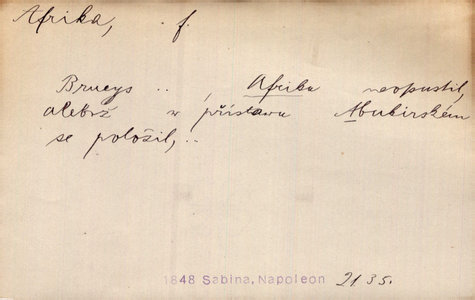 Afrika, f.
Brueys .. , Afriku neopustil,
alebrž w přístavu Abukirském
se položil, ..
1848 Sabina, Napoleon 2135.